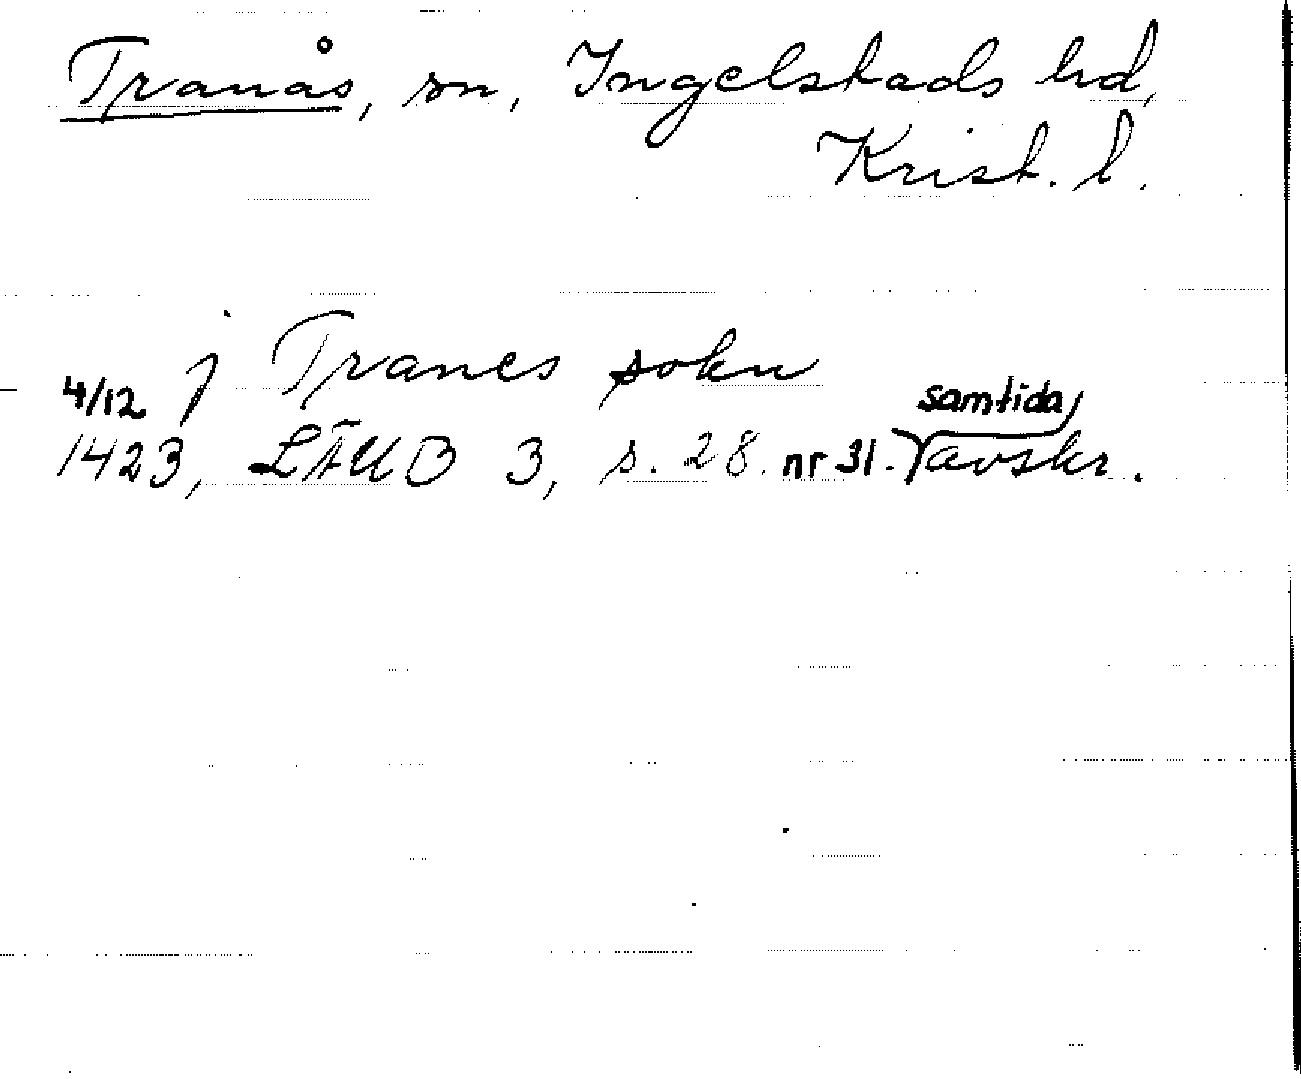 Tranås, sn, Ingelstads hd,
Krist. l.
j Tranes sokn
4/12 1423, LÄUB 3, s. 28. nr 31. samtida avskr.